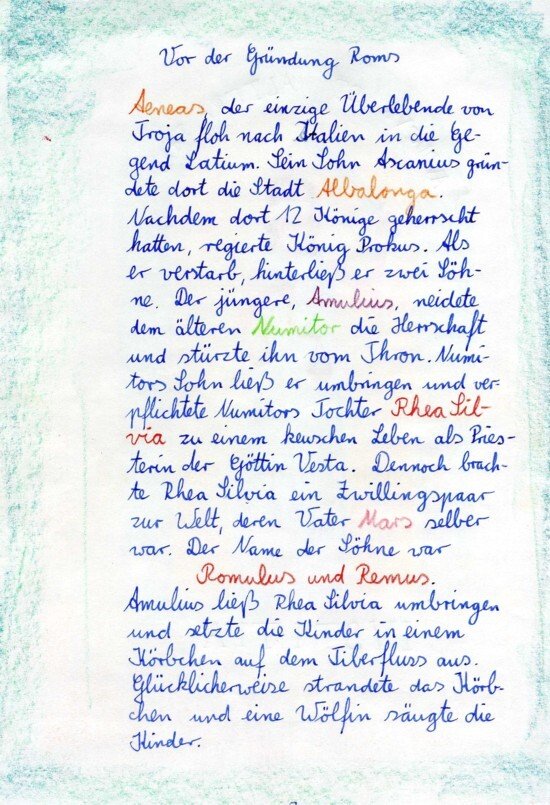 Vor der Gründung Roms
Aeneas, der einzige Überlebende von
Troja floh nach Italien in die Ge-
gend Latium. Sein Sohn Ascanius grün-
dete dort die Stadt Albalonga.
Nachdem dort 12 Könige geherrscht
hatten, regierte König Prokus. Als
er verstarb, hinterließ er zwei Söh-
ne. Der jüngere, Amulius, neidete
dem älteren Numitor die Herrschaft
und stürzte ihn vom Thron. Numi-
tors Sohn ließ er umbringen und ver-
pflichtete Numitors Tochter Rhea Sil-
via zu einem keuschen Leben als Pries-
terin der Göttin Vesta. Dennoch brach-
te Rhea Silvia ein Zwillingspaar
zur Welt, deren Vater Mars selber
war. Der Name der Söhne war
Romulus und Remus.
Amulius ließ Rhea Silvia umbringen
und setzte die Kinder in einem
Körbchen auf dem Tiberfluss aus.
Glücklicherweise strandete das Körb-
chen und eine Wölfin säugte die
Kinder.